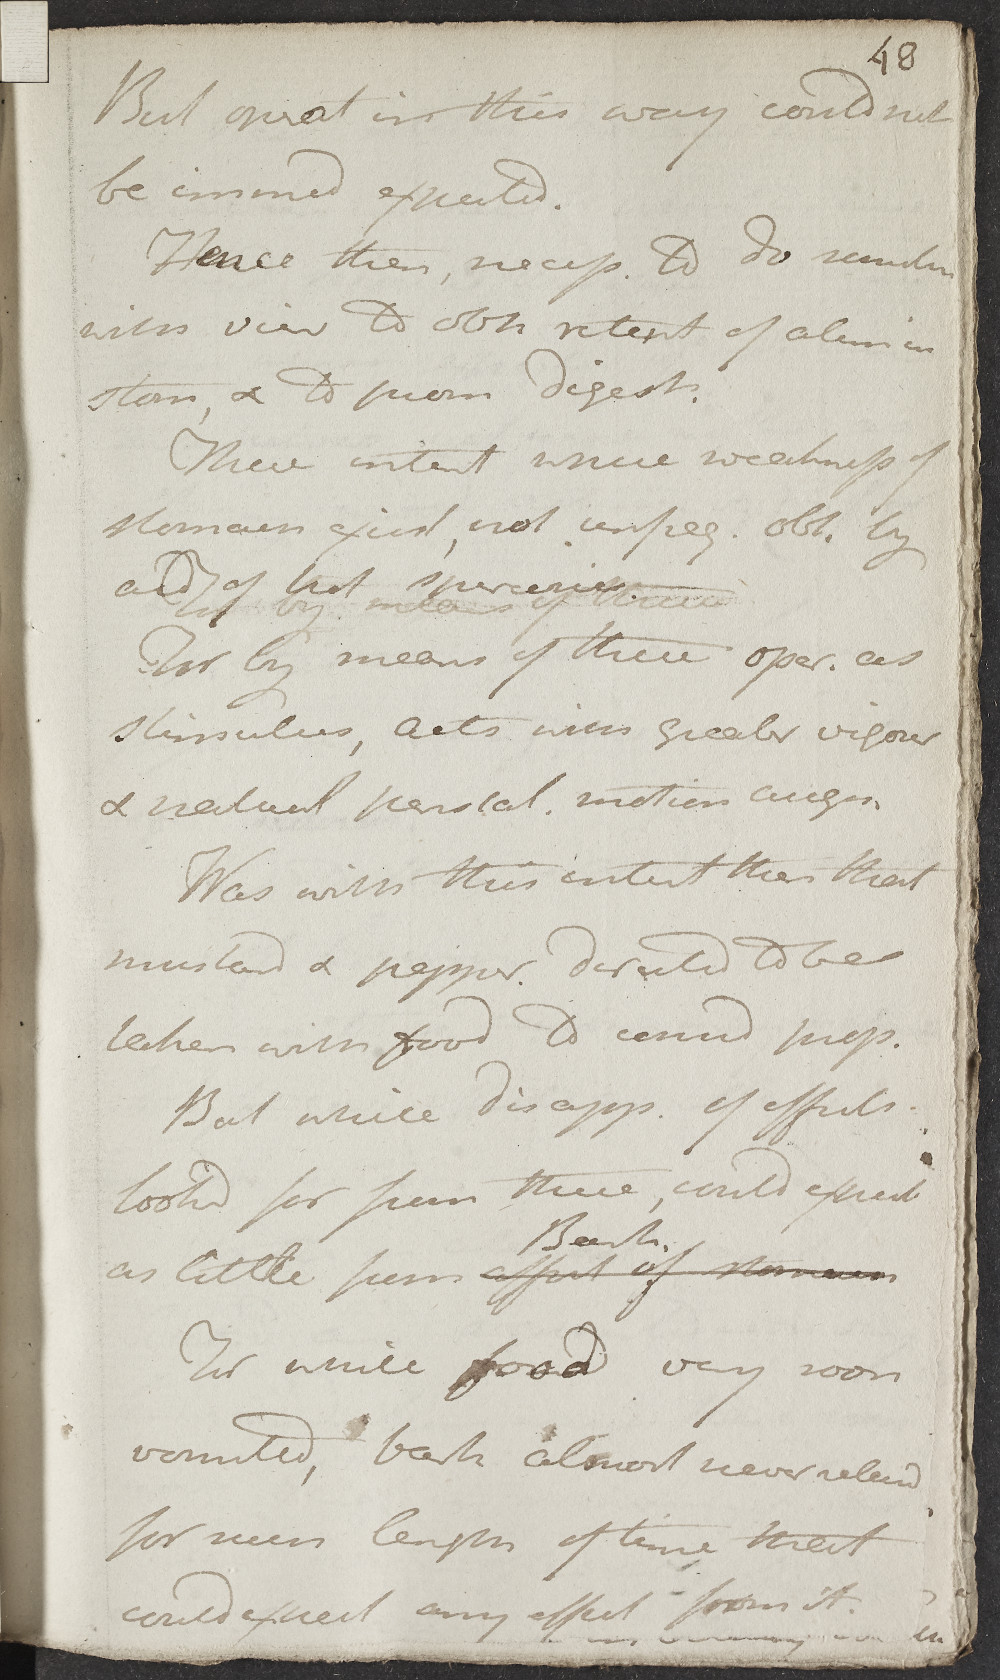 48
But operat in this way could not
be immed expected.
Hence then, necess. to do somethin
with view to obtn retent of alim in
stom, & to prom digestn.
These intent where weakness of
stomach exist, not unfreq. obt. by
aid of hot spiceries.
For by means of these
For by means of these oper. as
stimulus, acts with greater vigour
& natural peristal. motion augm.
Was with this intent then that
mustard & pepper. directed to be
taken with food to consid prop.
But while disapp. of effects
look'd for from these, could expect
Bark.
as little from effect of stomach
For while food very soon
vomited, bark almost never retaind
for such length of time, that
could expect any effect from it.
in